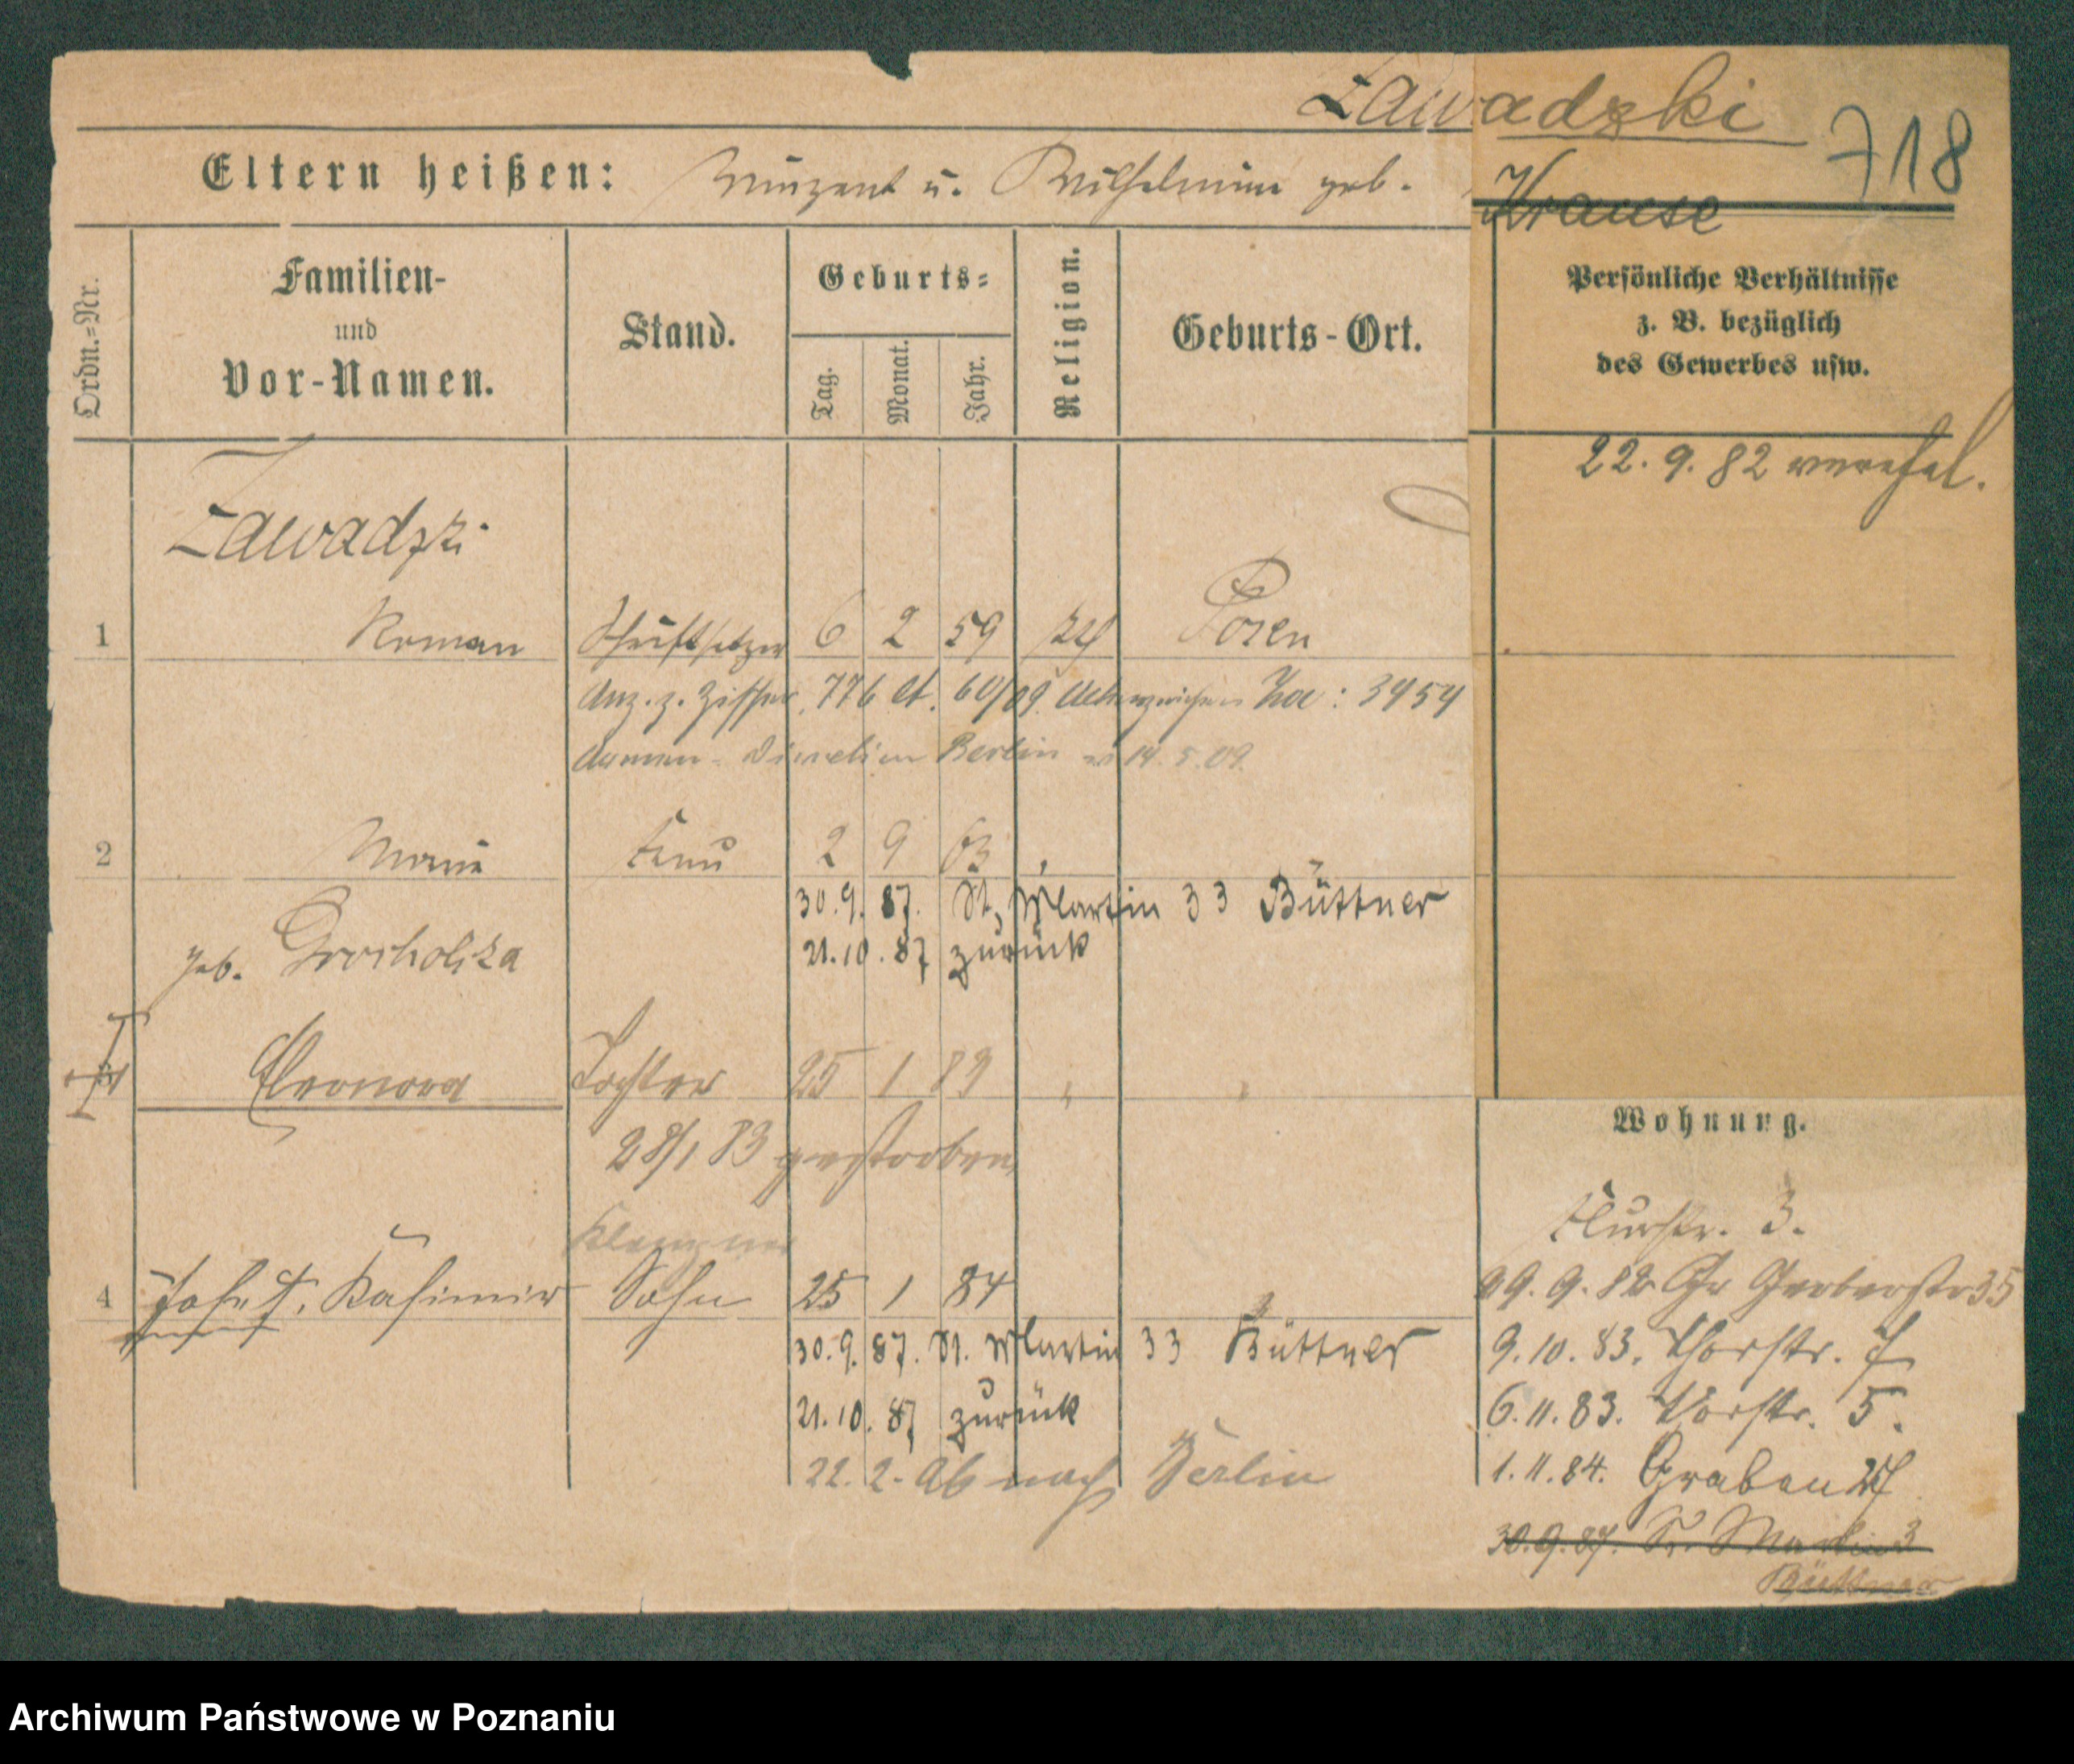 Zawadzki
718
Eltern heißen: Vinzent u. Wilhelmine geb. Krause
Ordn.=Nr.
Familien-
und
Vor-Namen.
Stand.
Geburts=
Tag.
Monat.
Jahr.
Religion.
Geburts-Ort.
Persönliche Verhältnisse
z. B. bezüglich
des Gewerbes usw.
22. 9. 82 verehel.
Zawadzki
1 Roman Schriftsetzer 6 2 59 kth Posen
Anz. z. Ziffer. 776 60/09 Aktenzeichen Za: 3454
Armen-Direction Berlin 14. 5. 09.
2 Maria Frau 2 9 63
30. 9. 87. St. Martin 33 Büttner
geb. Grocholska
21. 10. 87 zurück
Eleonora Tochter 25 1 83
28/1 83 gestorben
Wohnung.
Flurstr. 3.
Klempner
4 Josef, Kasimir Sohn 25 1 84
29. 9. 82 Gr Gerberstr 35
30. 9. 87. St. Martin 33 Büttner
9. 10. 83. Thorstr. 7
21. 10. 87 zurück
6. 11. 83. Thorstr. 5.
22. 2. Ab nach Berlin
1. 11. 84. Graben 27
30. 9. 87. St. Martin 3
Büttner
Archiwum Państwowe w Poznaniu